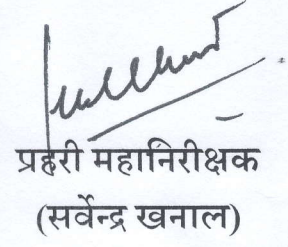 प्रहरी महानिरीक्षक
(सर्वेन्द्र खनाल)